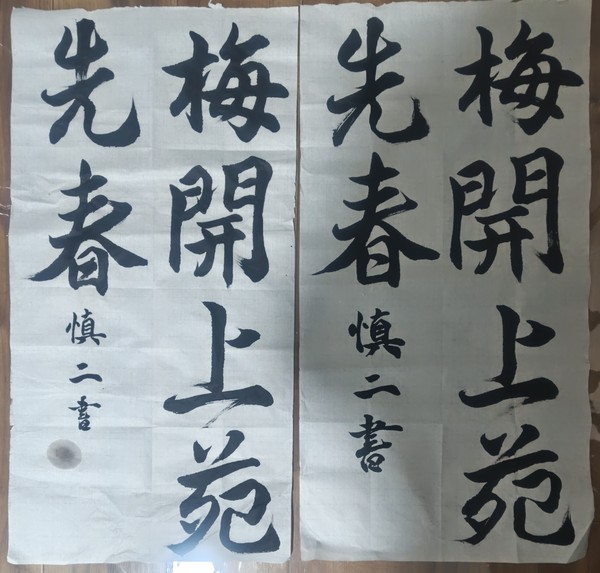 梅開上苑
先春
慎二書
梅開上苑
先春
慎二書